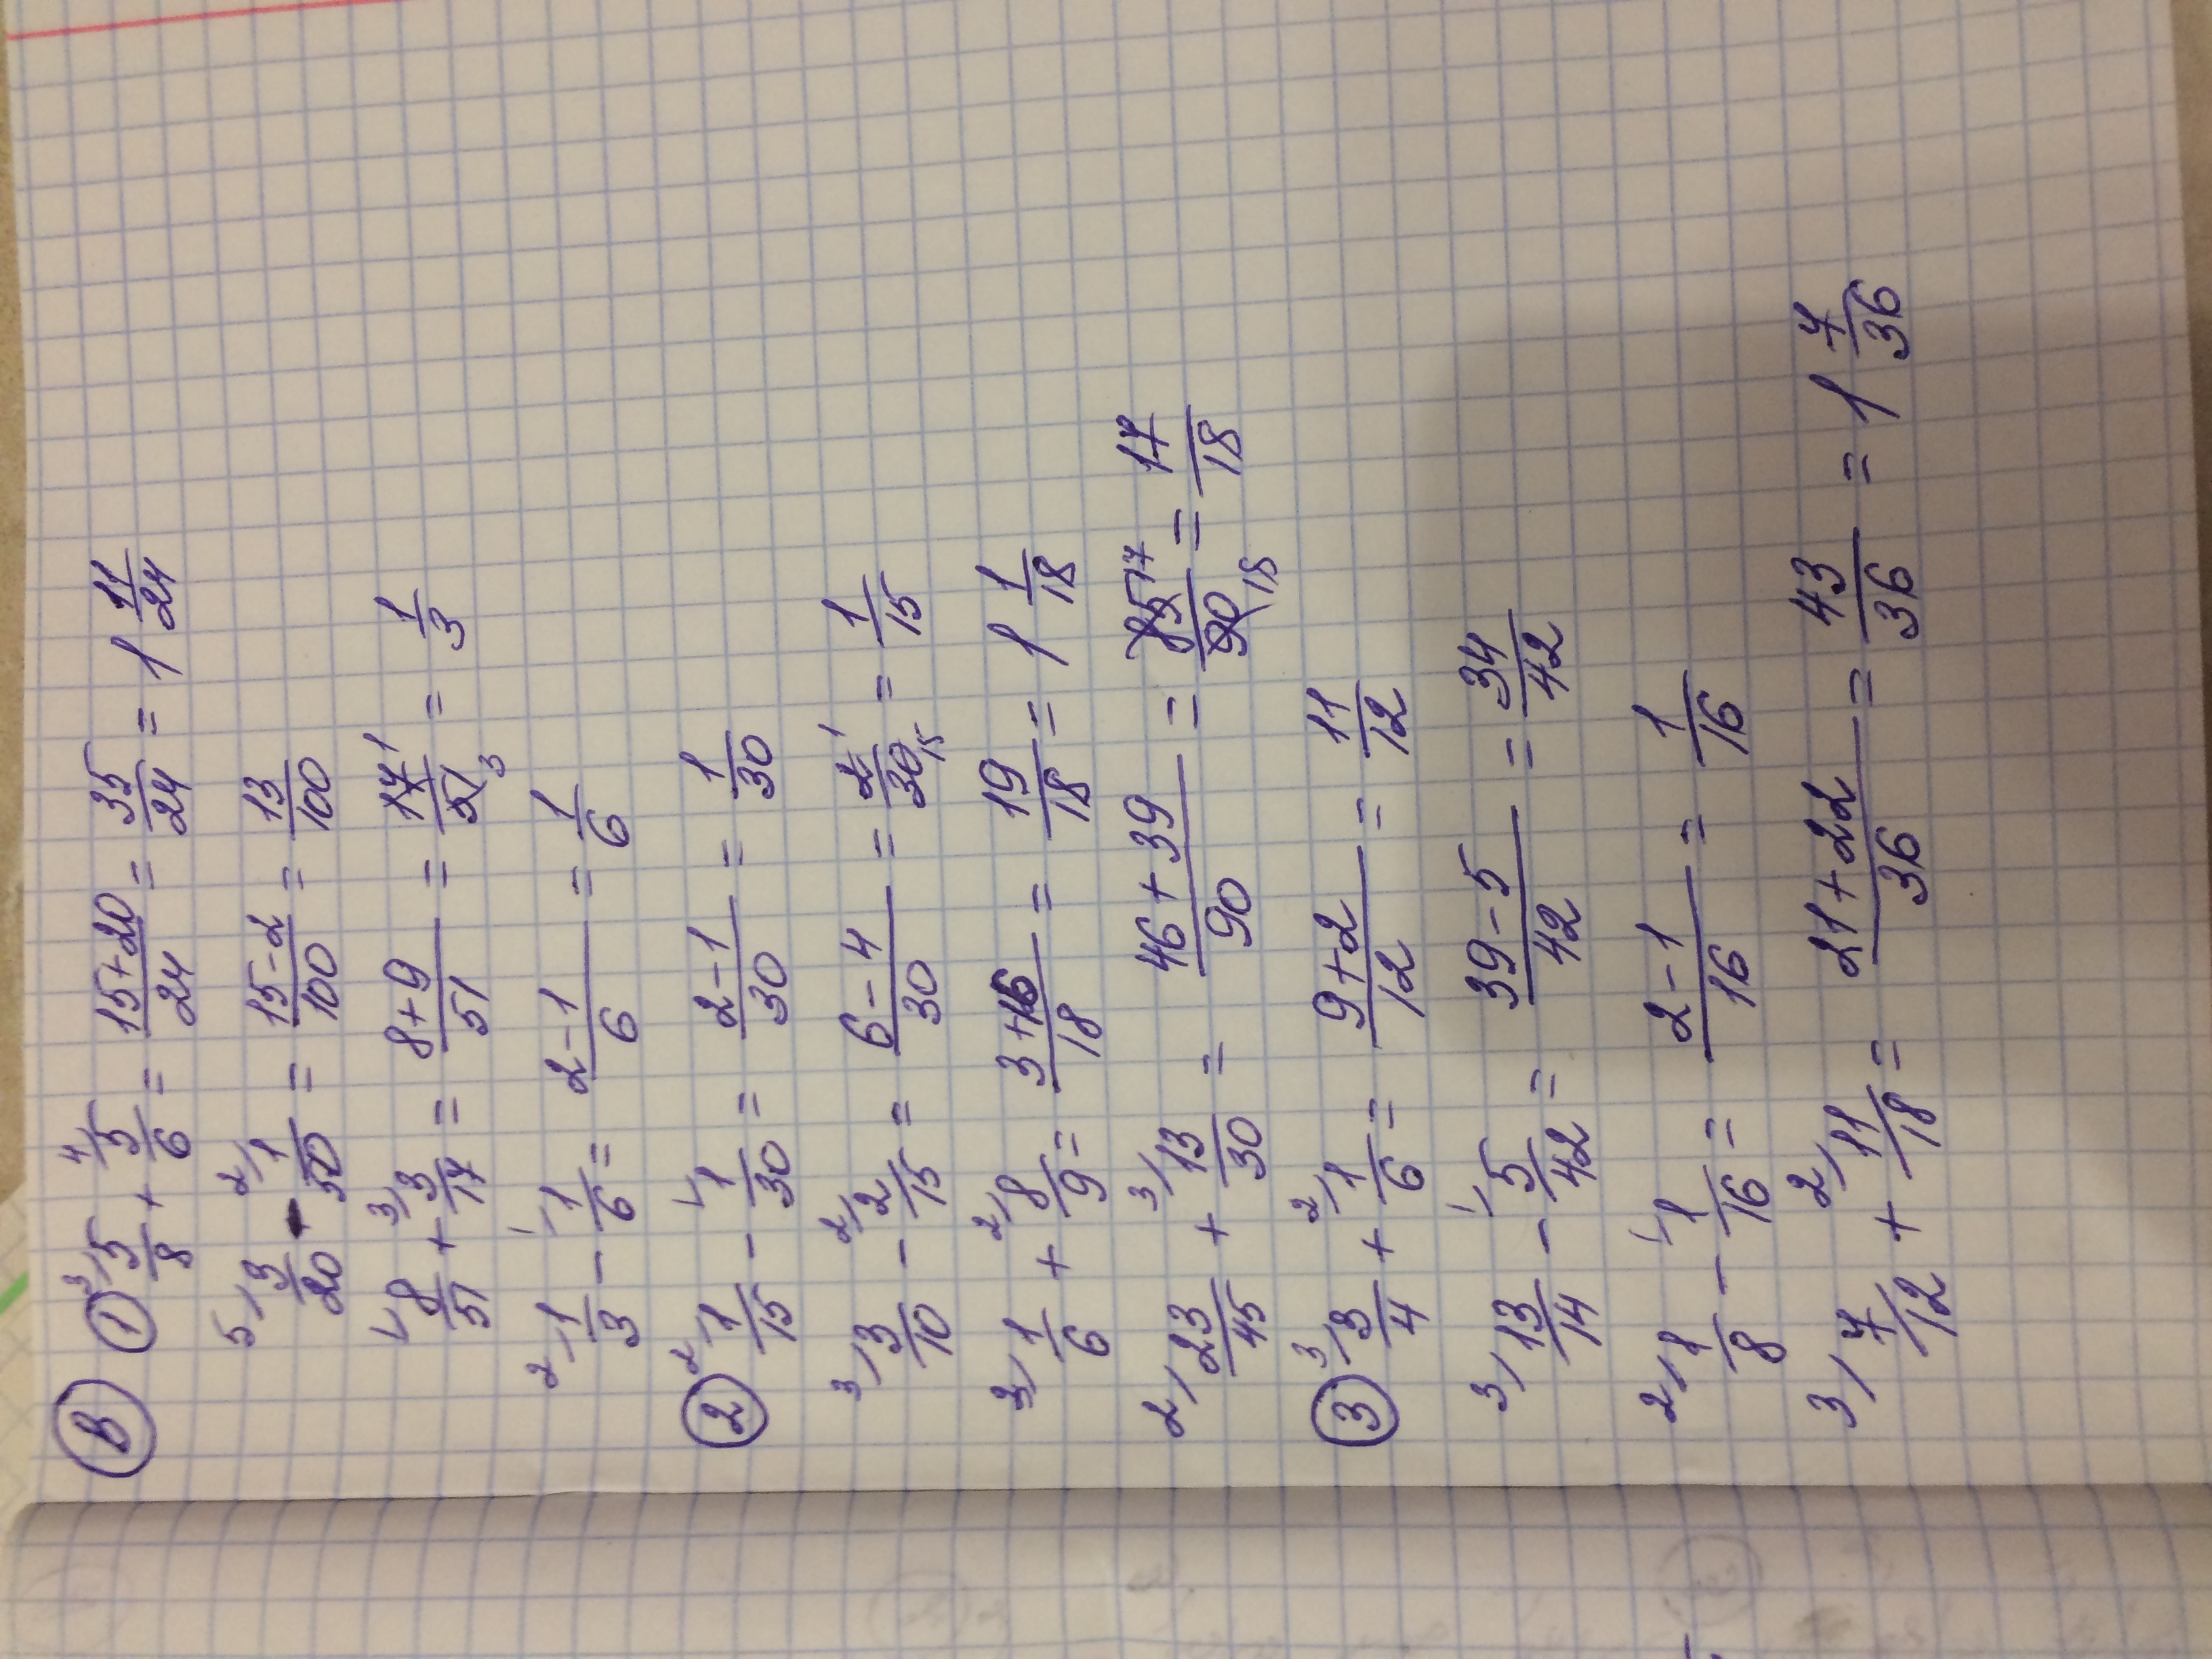 В ① ³⁾5/8 + ⁴⁾5/6 = (15+20)/24 = 35/24 = 1 11/24
⁵⁾3/20 - ²⁾1/50 = (15-2)/100 = 13/100
¹⁾8/51 + ³⁾3/17 = (8+9)/51 = 17¹/51₃ = 1/3
²⁾1/3 - ¹⁾1/6 = (2-1)/6 = 1/6
② ²⁾1/15 - ¹⁾1/30 = (2-1)/30 = 1/30
³⁾3/10 - ²⁾2/15 = (6-4)/30 = 2¹/30₁₅ = 1/15
³⁾1/6 + ²⁾8/9 = (3+16)/18 = 19/18 = 1 1/18
²⁾23/45 + ³⁾13/30 = (46+39)/90 = 85¹⁷/90₁₈ = 17/18
③ ³⁾3/4 + ²⁾1/6 = (9+2)/12 = 11/12
³⁾13/14 - ¹⁾5/42 = (39-5)/42 = 34/42
²⁾1/8 - ¹⁾1/16 = (2-1)/16 = 1/16
³⁾7/12 + ²⁾11/18 = (21+22)/36 = 43/36 = 1 7/36